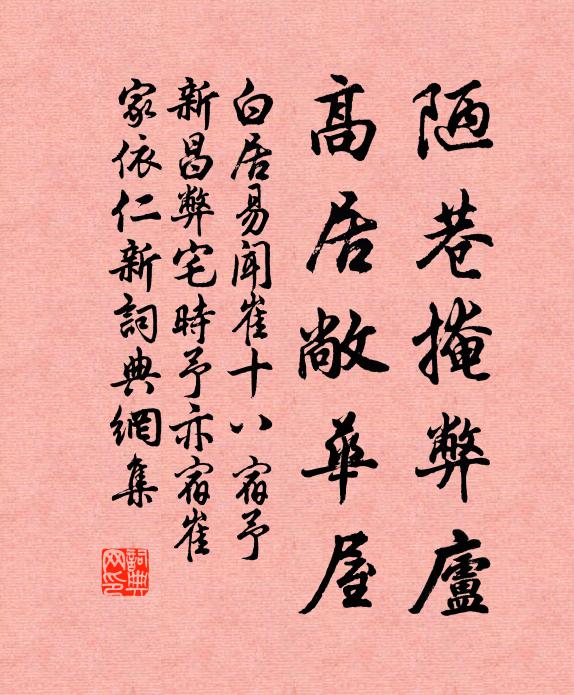 陋巷掩弊廬
高居敞華屋
白居易聞崔十八宿予
新昌弊宅時予亦宿崔
家依仁新詞典網集
詞典
网印